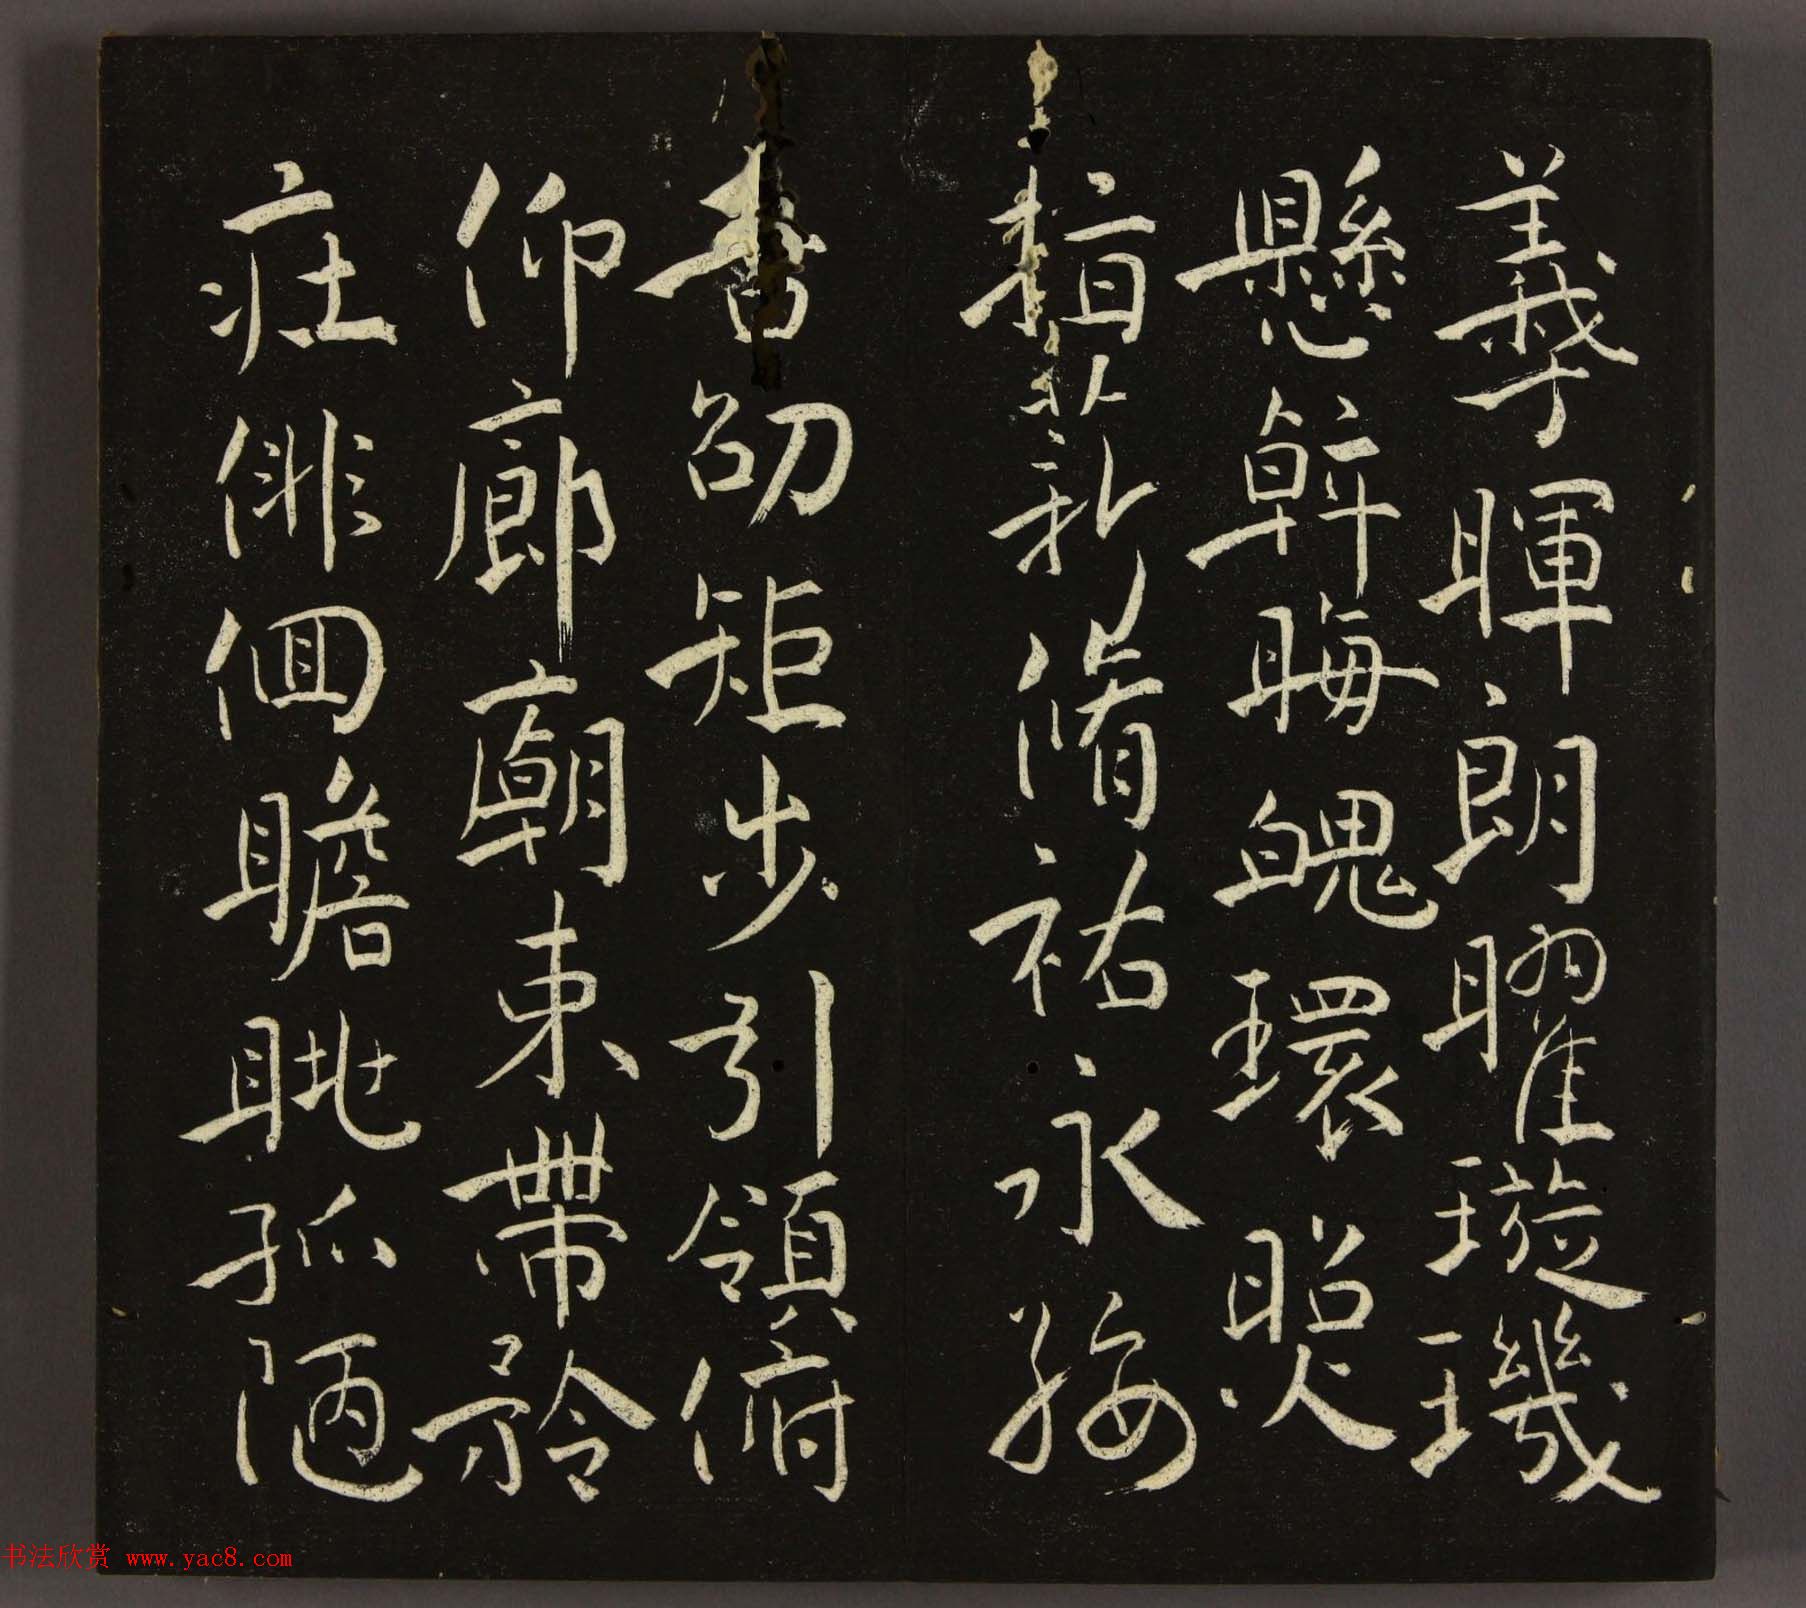 羲暉朗曜璇璣
懸斡晦魄環照
指薪脩祜永綏
吉劭矩步引領俯
仰廊廟束帶矜
莊徘徊瞻眺孤陋
书法欣赏 www.yac8.com